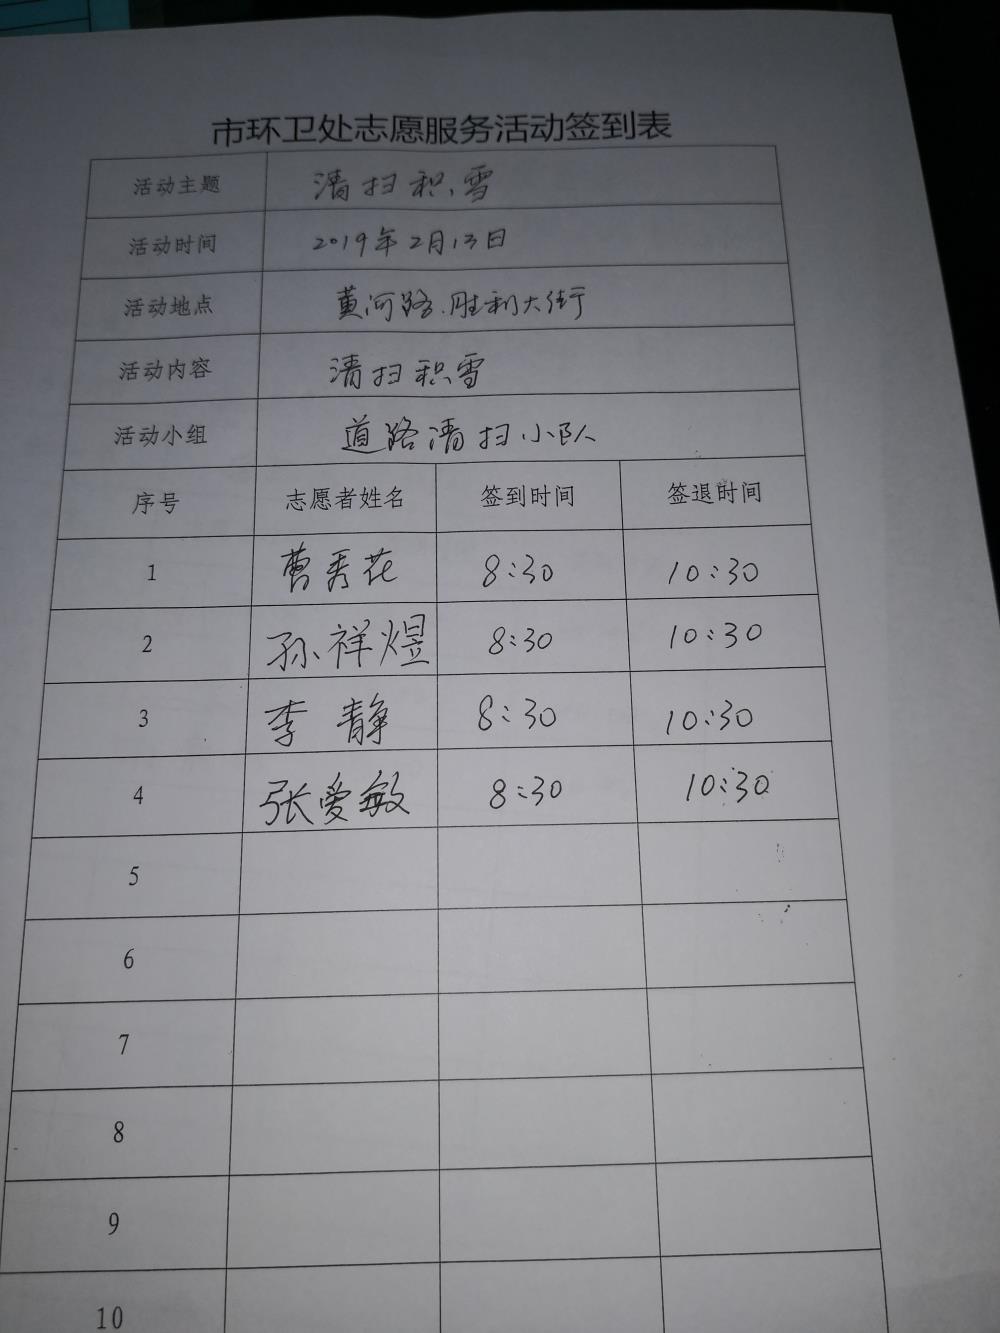 市环卫处志愿服务活动签到表
活动主题 清扫积雪
活动时间 2019年2月13日
活动地点 黄河路、胜利大街
活动内容 清扫积雪
活动小组 道路清扫小队
序号 志愿者姓名 签到时间 签退时间
1 曹秀花 8:30 10:30
2 孙祥煜 8:30 10:30
3 李静 8:30 10:30
4 张爱敏 8:30 10:30
5
6
7
8
9
10